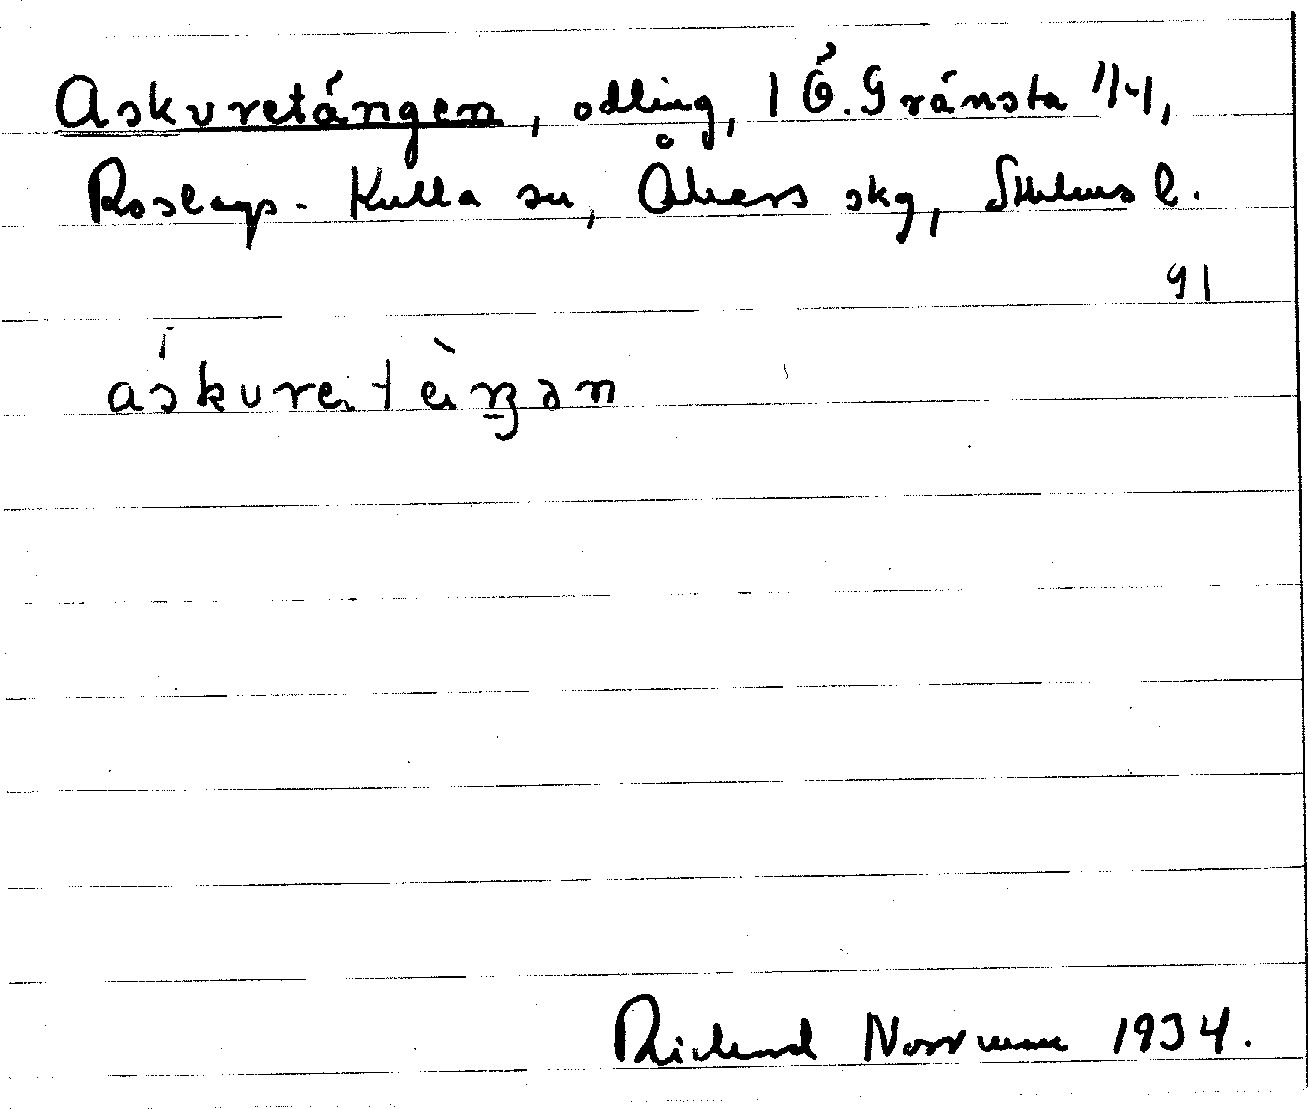 Askuretängen, odling, 1 Ö. Gränsta 1/1-1,
Roslags-Kulla sn, Åkers skg, Sthlms l.
91
áskure.tèŋən
Richard Norrman 1934.